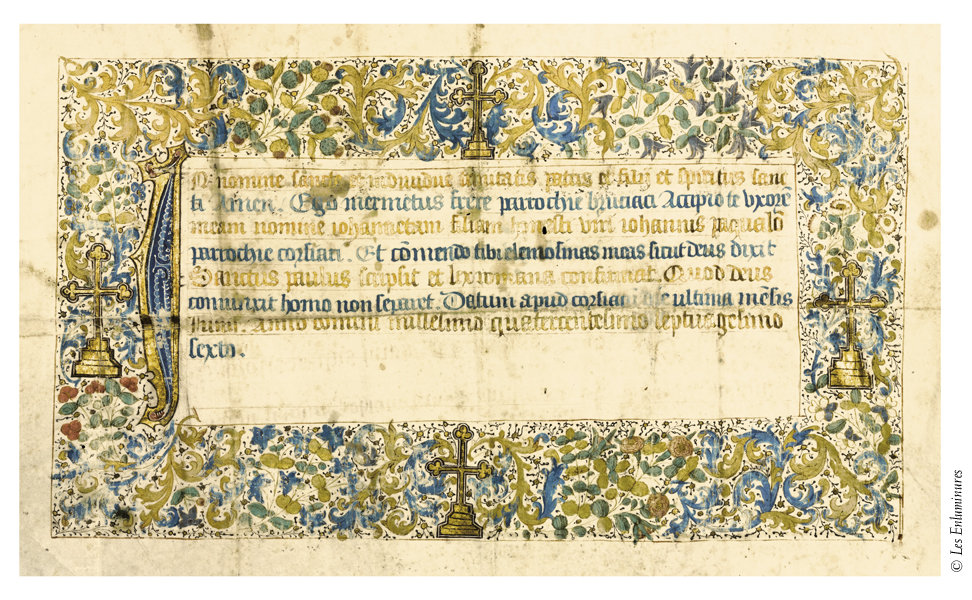 In nomine sancte et individue trinitatis patris et filij et spiritus sanc
ti Amen. Ego mermetus parrochie Accipio te vxorē
meam nomine iohannetam filiam honesti viri iohannis
parrochie corsiaci. Et cōmendo tibi elemosinas meas sicut deus dixit
Sanctus paulus scripsit et lex romana confirmat. Quod deus
coniunxit homo non separet. Datum apud corsiaci die ultima mēsis
Anno domini millesimo quatercentesimo septuagesimo
sexto.
© Les Enluminures